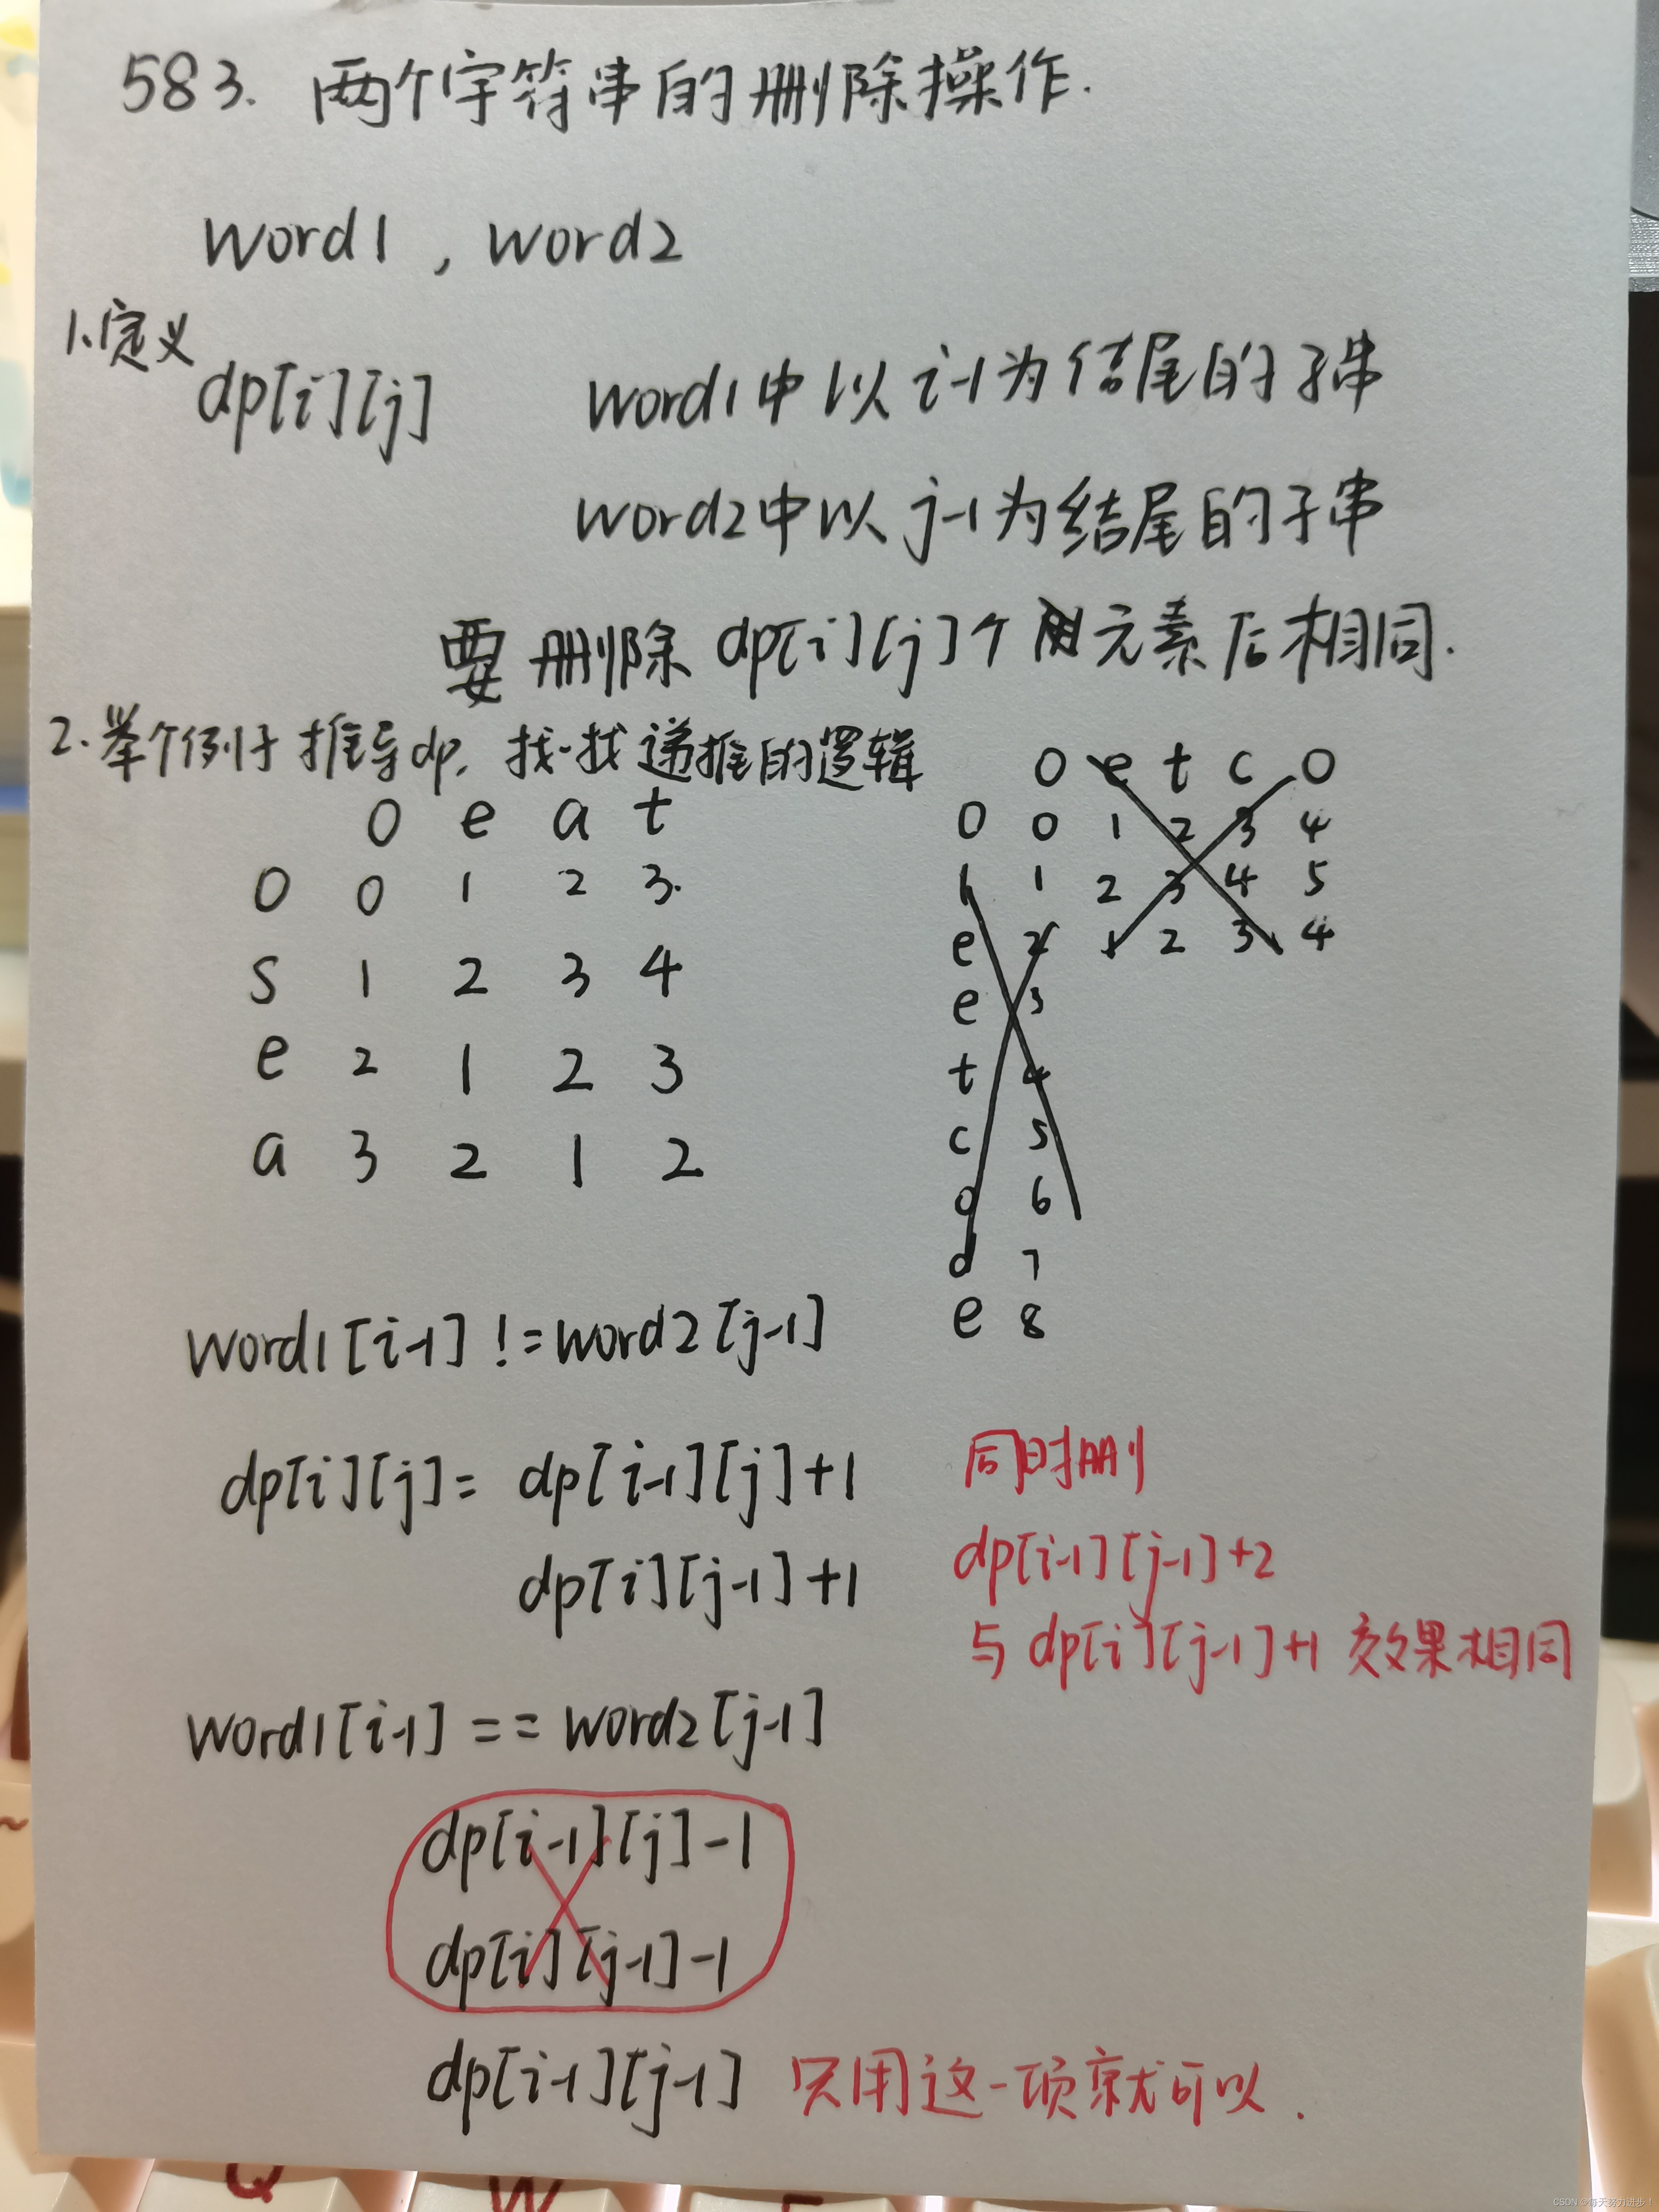 583. 两个字符串的删除操作.
word1 , word2
1.定义
dp[i][j] word1中以i-1为结尾的子串
word2中以j-1为结尾的子串
要删除dp[i][j]个元素后相同.
2.举个例子推导dp,找一找递推的逻辑
0 e a t
0 0 1 2 3.
s 1 2 3 4
e 2 1 2 3
a 3 2 1 2
0 e t c o
0 0 1 2 3 4
l 1 2 3 4 5
e 2 1 2 3 4
e 3
t 4
c 5
o 6
d 7
e 8
word1[i-1] != word2[j-1]
dp[i][j]= dp[i-1][j]+1
dp[i][j-1]+1
同时删
dp[i-1][j-1]+2
与dp[i][j-1]+1 效果相同
word1[i-1] == word2[j-1]
dp[i-1][j]-1
dp[i][j-1]-1
dp[i-1][j-1] 只用这一项就可以.
Q W
CSDN @每天努力进步!